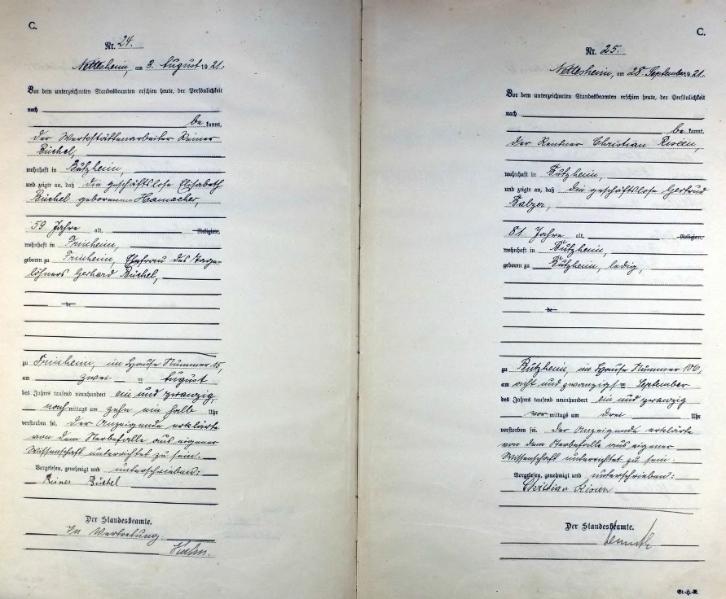 C.
Nr. 24.
Nettesheim, am 3. August 1921.
Vor dem unterzeichneten Standesbeamten erschien heute, der Persönlichkeit
nach
be kannt,
der Werkstättenarbeiter Reiner
Büchel,
wohnhaft in Butzheim,
und zeigte an, daß die geschäftslose Elisabeth
Büchel geborenen Hamacher,
59 Jahre alt, Religion,
wohnhaft in Frixheim,
geboren zu Frixheim, Ehefrau des Tage-
löhners Gerhard Büchel,
zu Frixheim, im Hause Nummer 15,
am zwei ten August
des Jahres tausend neunhundert ein und zwanzig,
nach mittags um zehn ein halb Uhr
verstorben sei. Der Anzeigende erklärte
von dem Sterbefalle aus eigener
Wissenschaft unterrichtet zu sein.
Vorgelesen, genehmigt und unterschrieben:
Reiner Büchel
Der Standesbeamte.
In Vertretung.
C.
Nr. 25.
Nettesheim, am 28. September 1921.
Vor dem unterzeichneten Standesbeamten erschien heute, der Persönlichkeit
nach
be kannt,
der Rentner Christian
wohnhaft in Butzheim,
und zeigte an, daß die geschäftslose Gertrud
81 Jahre alt, Religion,
wohnhaft in Butzheim,
geboren zu Butzheim, ledig,
zu Butzheim, im Hause Nummer 106,
am acht und zwanzigsten September
des Jahres tausend neunhundert ein und zwanzig
vor mittags um drei Uhr
verstorben sei. Der Anzeigende erklärte
von dem Sterbefalle aus eigener
Wissenschaft unterrichtet zu sein.
Vorgelesen, genehmigt und unterschrieben:
Christian
Der Standesbeamte.